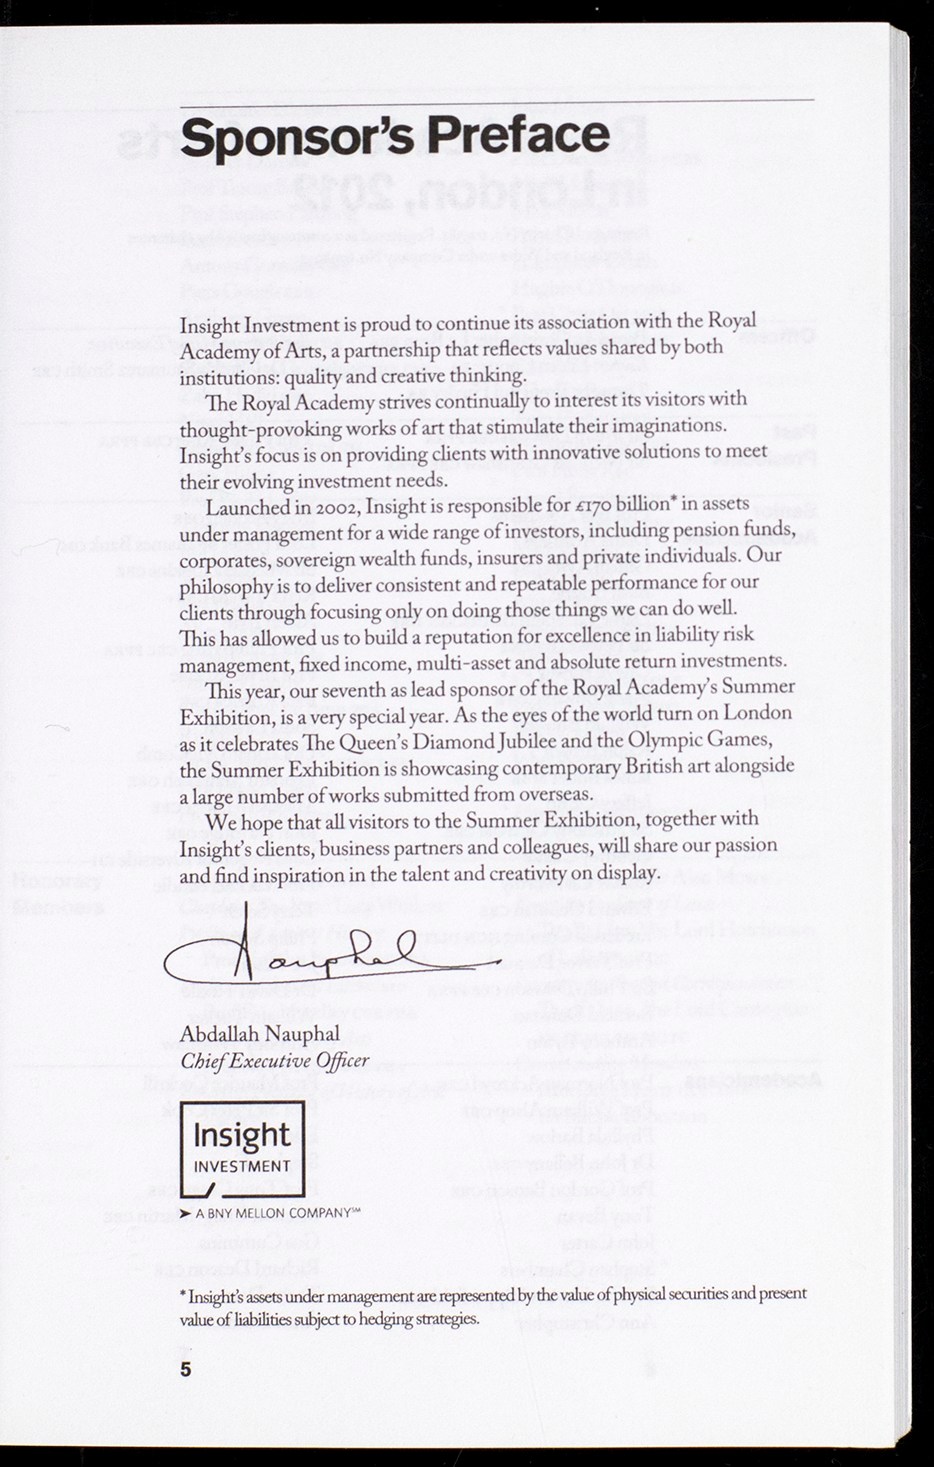 Sponsor's Preface
Insight Investment is proud to continue its association with the Royal
Academy of Arts, a partnership that reflects values shared by both
institutions: quality and creative thinking.
The Royal Academy strives continually to interest its visitors with
thought-provoking works of art that stimulate their imaginations.
Insight's focus is on providing clients with innovative solutions to meet
their evolving investment needs.
Launched in 2002, Insight is responsible for £170 billion* in assets
under management for a wide range of investors, including pension funds,
corporates, sovereign wealth funds, insurers and private individuals. Our
philosophy is to deliver consistent and repeatable performance for our
clients through focusing only on doing those things we can do well.
This has allowed us to build a reputation for excellence in liability risk
management, fixed income, multi-asset and absolute return investments.
This year, our seventh as lead sponsor of the Royal Academy's Summer
Exhibition, is a very special year. As the eyes of the world turn on London
as it celebrates The Queen's Diamond Jubilee and the Olympic Games,
the Summer Exhibition is showcasing contemporary British art alongside
a large number of works submitted from overseas.
We hope that all visitors to the Summer Exhibition, together with
Insight's clients, business partners and colleagues, will share our passion
and find inspiration in the talent and creativity on display.
Nauphal
Abdallah Nauphal
Chief Executive Officer
Insight
INVESTMENT
➤ A BNY MELLON COMPANY℠
* Insight's assets under management are represented by the value of physical securities and present
value of liabilities subject to hedging strategies.
5